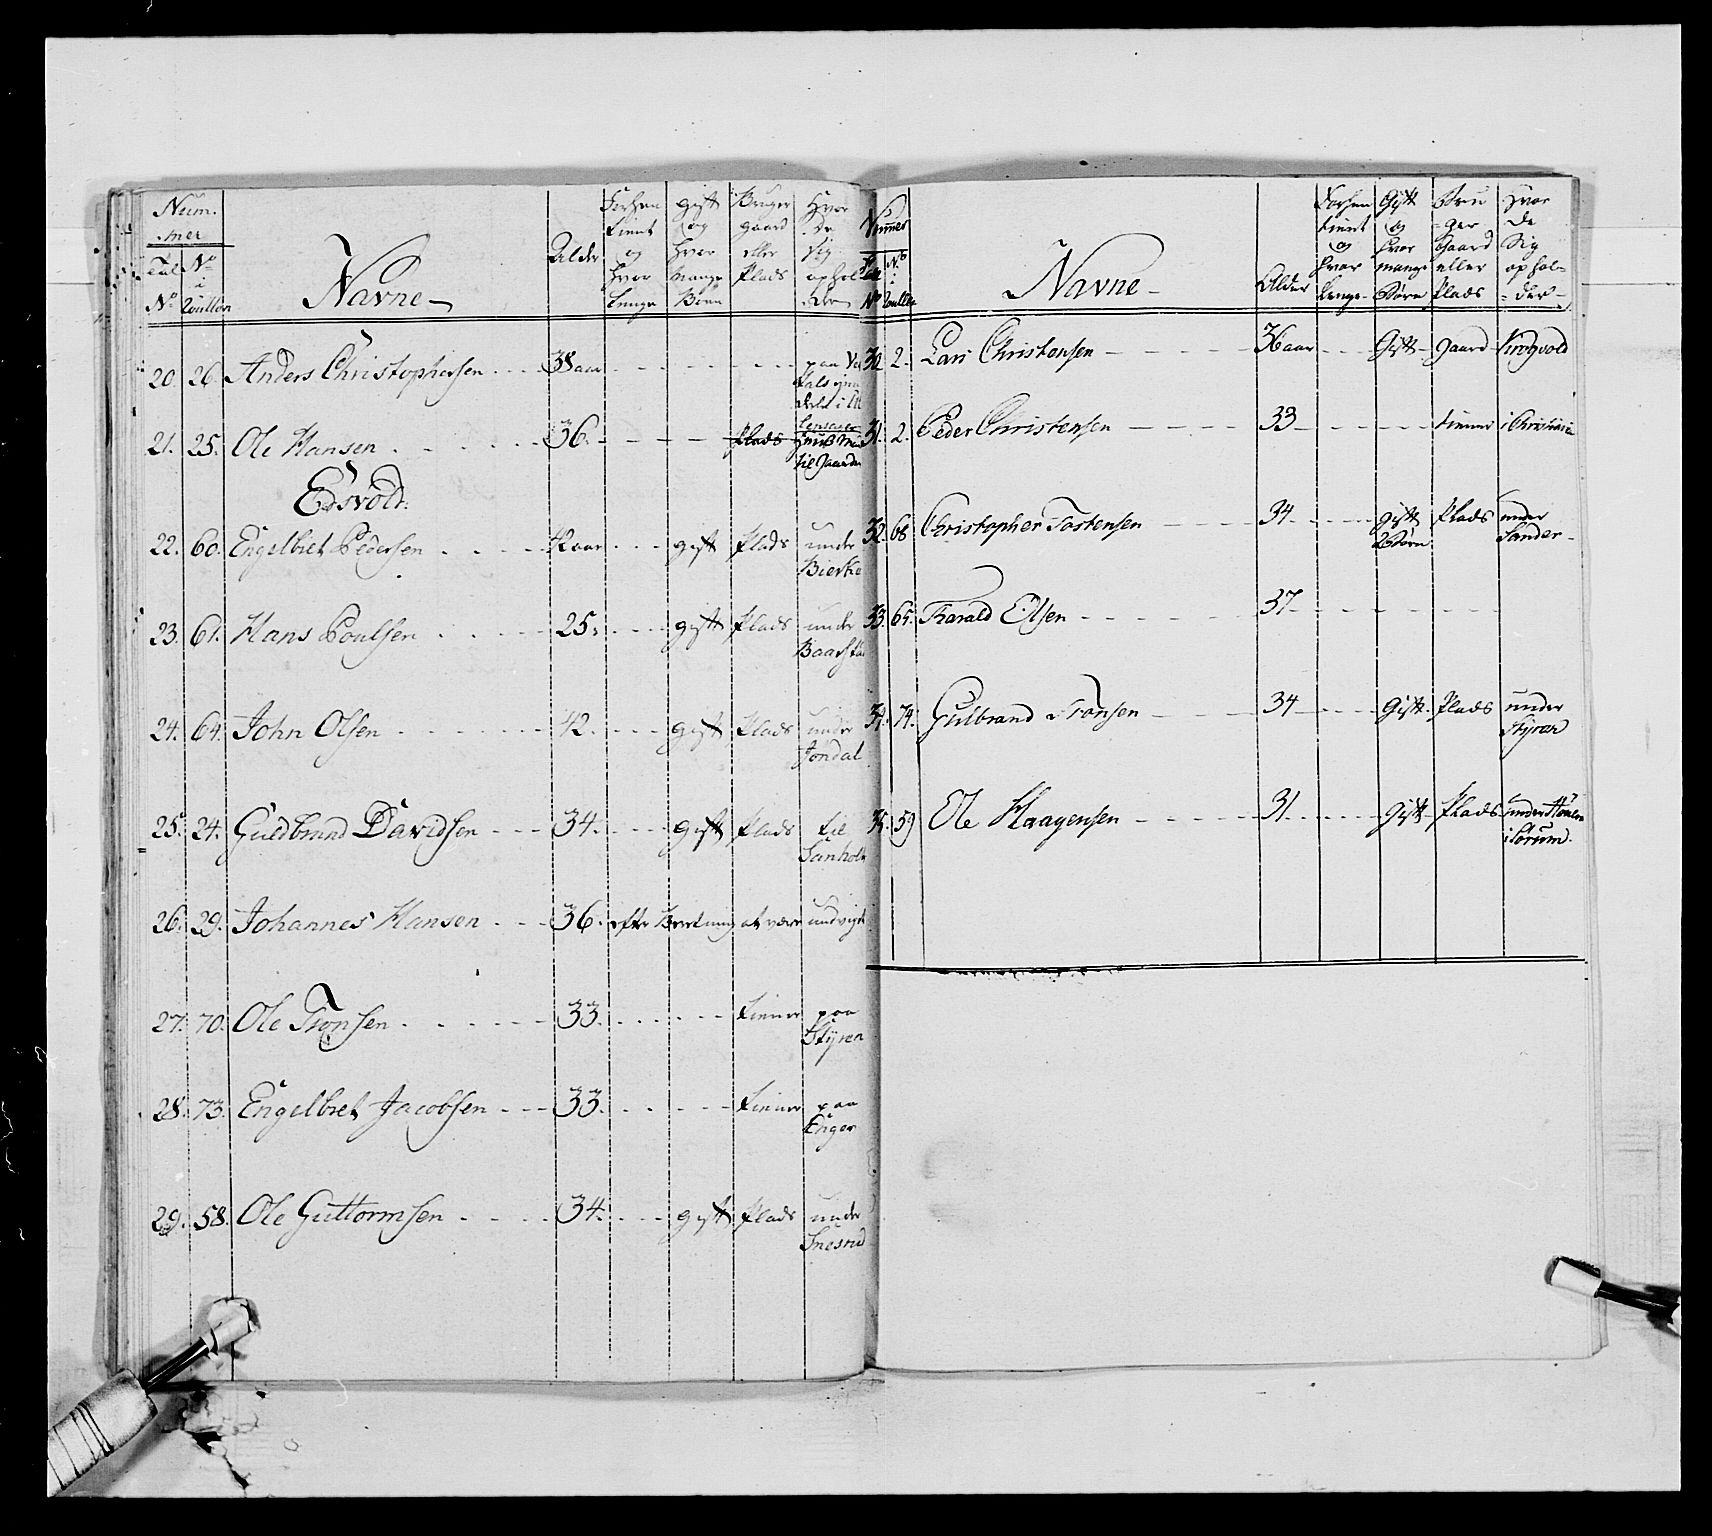 Num-
mer
Tal No i
No Roullen
Navne
Alder
Forhen tient og hvor lenge
gift og hvor mange Børn
Bruger gaard eller Plads
Hvor De Sig ophol- der
20. 26. Anders Christophersen 38 aar paa
21. 25. Ole Hansen 36. Plads
til Gaarden
Edsvold.
22. 60. Engelbret Pedersen 42 aar gift Plads under
Bierke
23. 61. Hans Poulsen 25. gift Plads under
24. 64. John Olsen 42. gift Plads under
Jondal
25. 24. Guldbrand Davidsen 34. gift Plads til
26. 29. Johannes Hansen 36. efter Beretning at være undvigt
27. 70. Ole Tronsen 33. tiener paa
Styren
28. 73. Engelbret Jacobsen 33. tiener paa
Enger
29. 58. Ole Guttormsen 34. gift Plads under
Nummer
No i Roullen
Navne
Alder
Forhen tient og hvor Lenge
Gift og hvor mange Børn
Bru- ger Gaard eller Plads
Hvor De Sig ophol- der
30. 2. Lars Christensen 36 aar Gift gaard
31. 2. Peder Christensen 33 tiener i Christiania
32. 68 Christopher Tostensen 34 gift Plads under
2 Børn Sander
33. 65. Harald Elsen 37
34. 74. Gulbrand Tronsen 34 Gift Plads under
Styren
35. 59 Ole Haagensen 31 Gift Plads under
i Sørum.